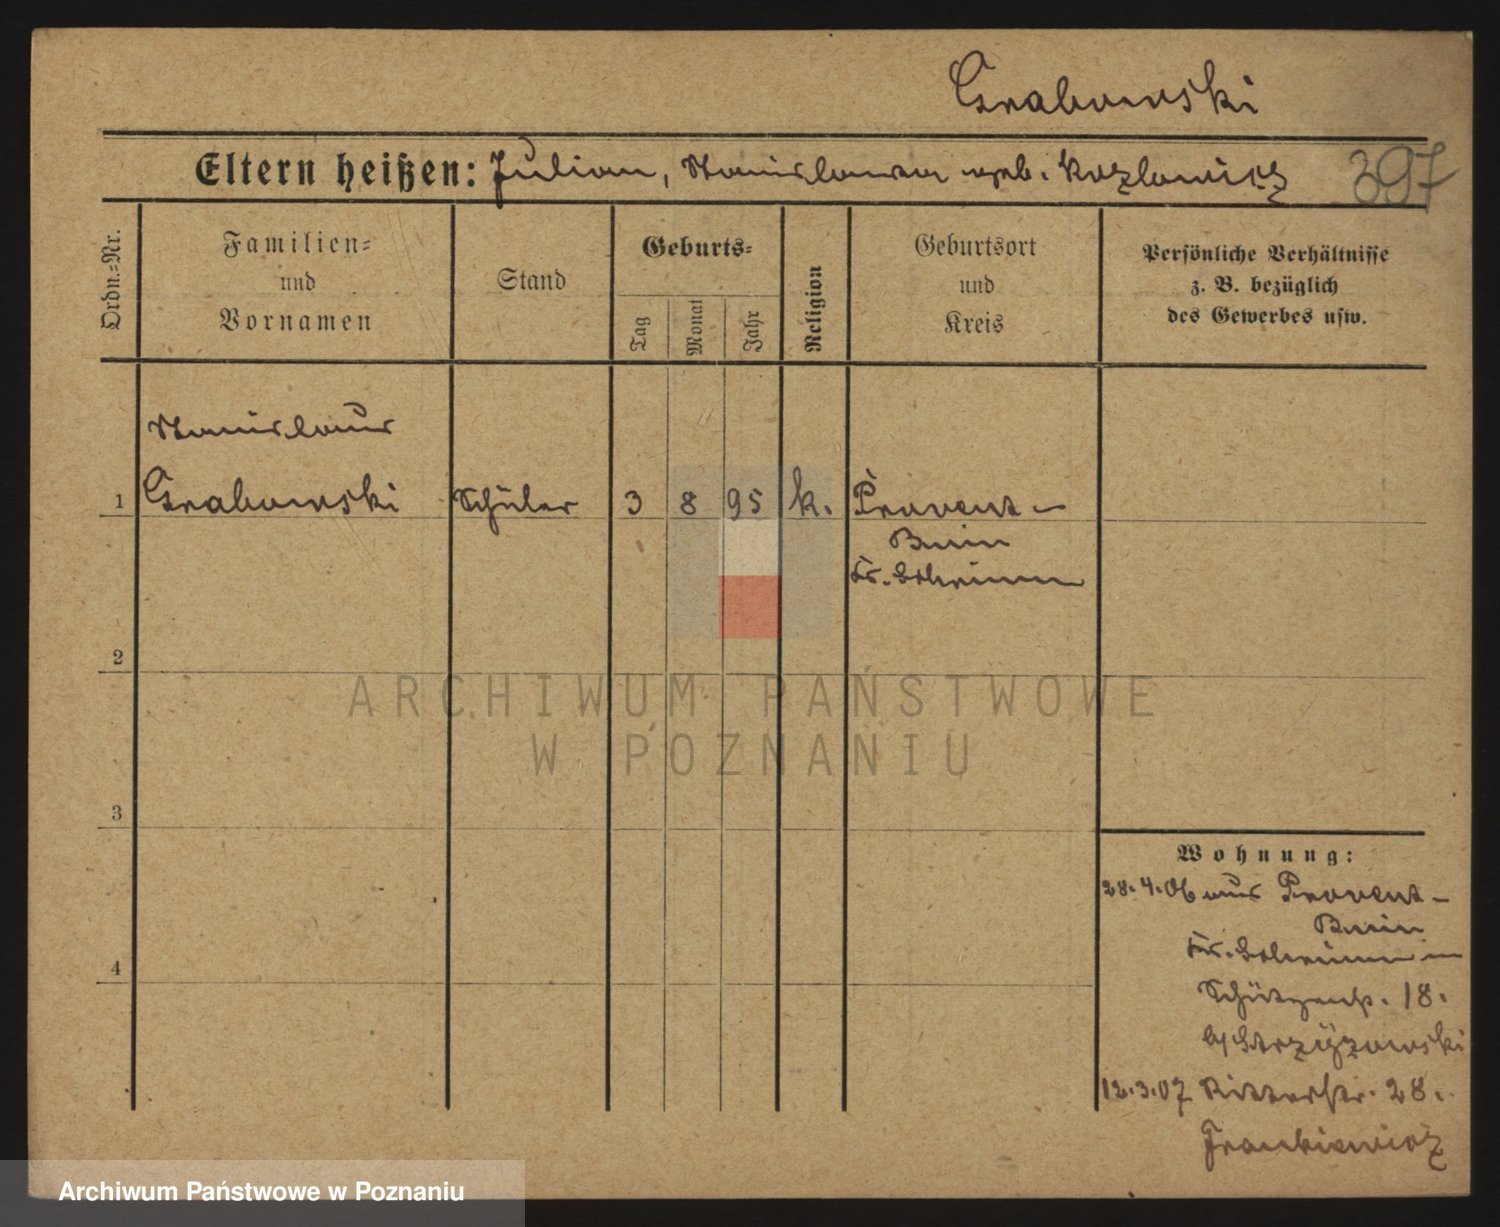 Grabowski
Eltern heißen: Julian, Stanislawa geb. Kozlowicz 397
Ordn.-Nr.
Familien-
und
Vornamen
Stand
Geburts-
Tag
Monat
Jahr
Religion
Geburtsort
und
Kreis
Persönliche Verhältnisse
z. B. bezüglich
des Gewerbes usw.
Stanislaus
1 Grabowski Schüler 3 8 95 k. Provent-
Bnin
Kr. Schrimm
2
3
4
ARCHIWUM PAŃSTWOWE
W POZNANIU
Wohnung:
28.4.06 aus Provent-
Bnin
Kr. Schrimm
Schützenst. 18.
12.3.07 Ritterstr. 28.
Frankiewicz
Archiwum Państwowe w Poznaniu